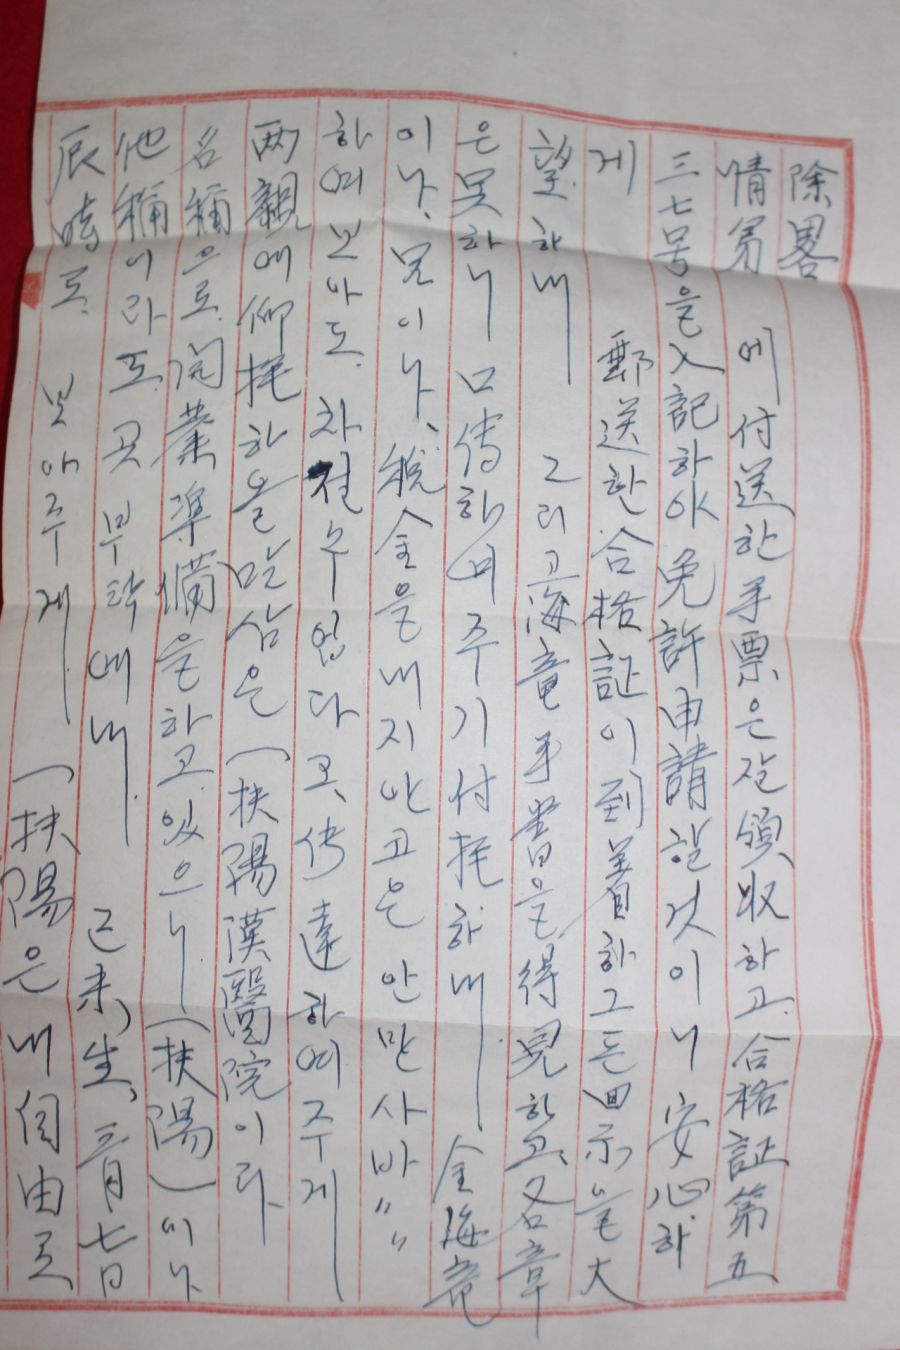 除畧
情弟 에付送한手票은잘領収하고.合格証第五
三七号을入記하야免許申請할것이니安心하
게 郵送한合格証이到着하그든回示을大
望하내 그리고海竜手書을得見하고、名章
은못하니 口傳하여주기付托하내 金海竜
이나、못이나、稅金을내지안고은안만사바〃〃
하며 보아도.차절수업다고、傳達하여주게
両親에仰托하올말삼은(扶陽漢醫院이라
名稱으로.開業準備을하고.있으니(扶陽)이나
他稱이라도.곳부탁에내. 己未、生、三月七日
辰時로. 보아주게. (扶陽은내自由로